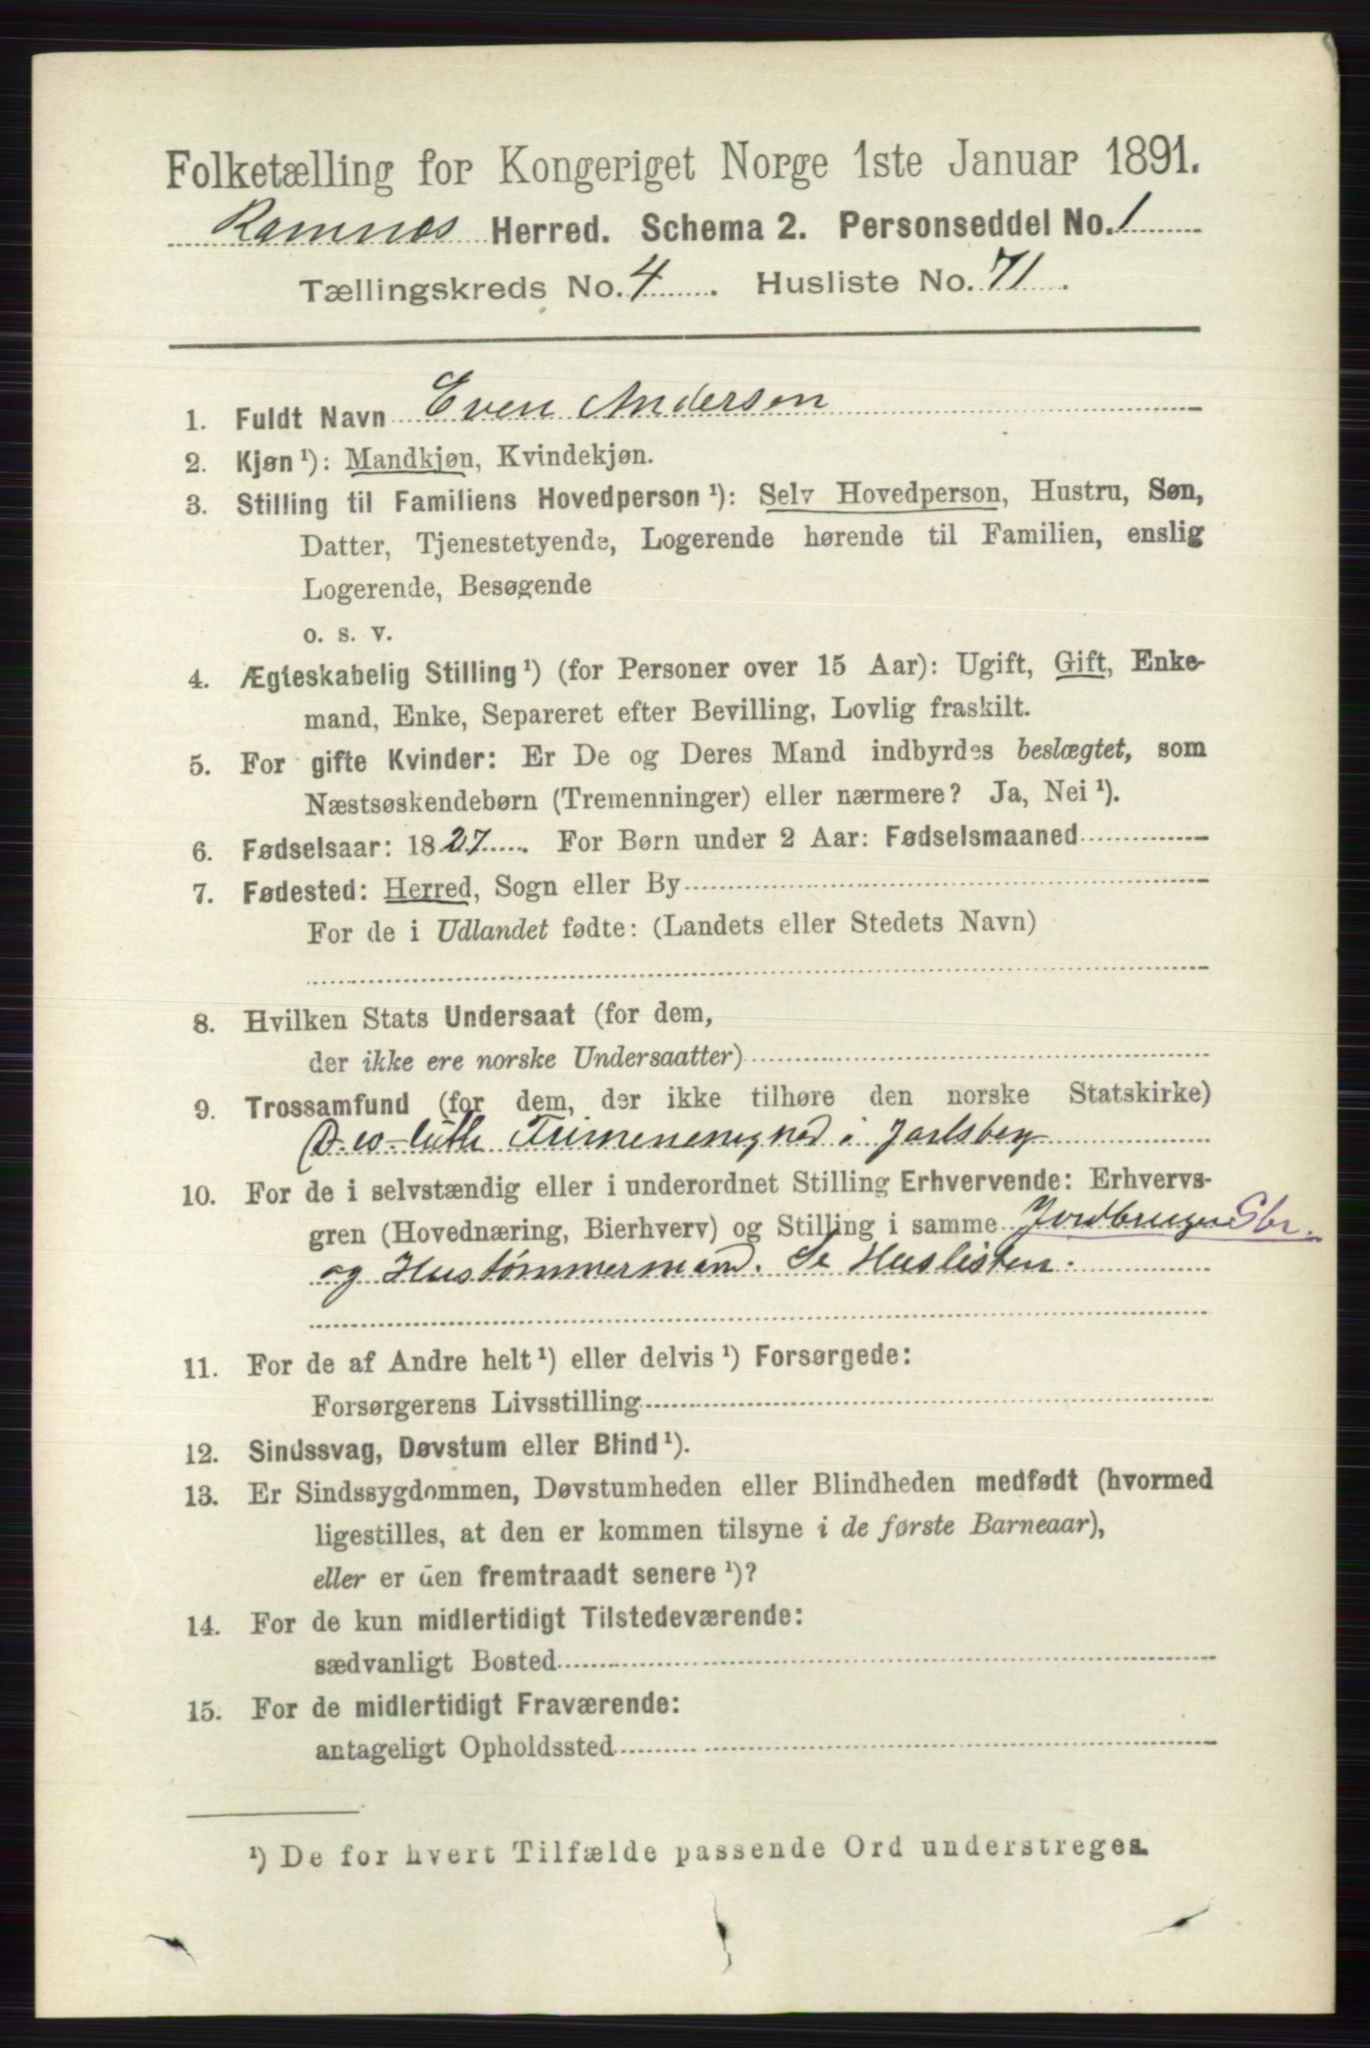 Folketælling for Kongeriget Norge 1ste Januar 1891.
Ramnæs Herred. Schema 2. Personseddel No. 1
Tællingskreds No. 4. Husliste No. 71.
1. Fuldt Navn Even Andersen
2. Kjøn¹): Mandkjøn, Kvindekjøn.
3. Stilling til Familiens Hovedperson¹): Selv Hovedperson, Hustru, Søn,
Datter, Tjenestetyende, Logerende hørende til Familien, enslig
Logerende, Besøgende
o. s. v.
4. Ægteskabelig Stilling¹) (for Personer over 15 Aar): Ugift, Gift, Enke-
mand, Enke, Separeret efter Bevilling, Lovlig fraskilt.
5. For gifte Kvinder: Er De og Deres Mand indbyrdes beslægtet, som
Næstsøskendebørn (Tremenninger) eller nærmere? Ja, Nei¹).
6. Fødselsaar: 1827. For Børn under 2 Aar: Fødselsmaaned
7. Fødested: Herred, Sogn eller By
For de i Udlandet fødte: (Landets eller Stedets Navn)
8. Hvilken Stats Undersaat (for dem,
der ikke ere norske Undersaatter)
9. Trossamfund (for dem, der ikke tilhøre den norske Statskirke)
luth i Jarlsberg
10. For de i selvstændig eller i underordnet Stilling Erhvervende: Erhvervs-
gren (Hovednæring, Bierhverv) og Stilling i samme Jordbruger Sbr.
og Hustømmermand. Se Huslisten.
11. For de af Andre helt¹) eller delvis¹) Forsørgede:
Forsørgerens Livsstilling
12. Sindssvag, Døvstum eller Blind¹).
13. Er Sindssygdommen, Døvstumheden eller Blindheden medfødt (hvormed
ligestilles, at den er kommen tilsyne i de første Barneaar),
eller er den fremtraadt senere¹)?
14. For de kun midlertidigt Tilstedeværende:
sædvanligt Bosted
15. For de midlertidigt Fraværende:
antageligt Opholdssted
¹) De for hvert Tilfælde passende Ord understreges.